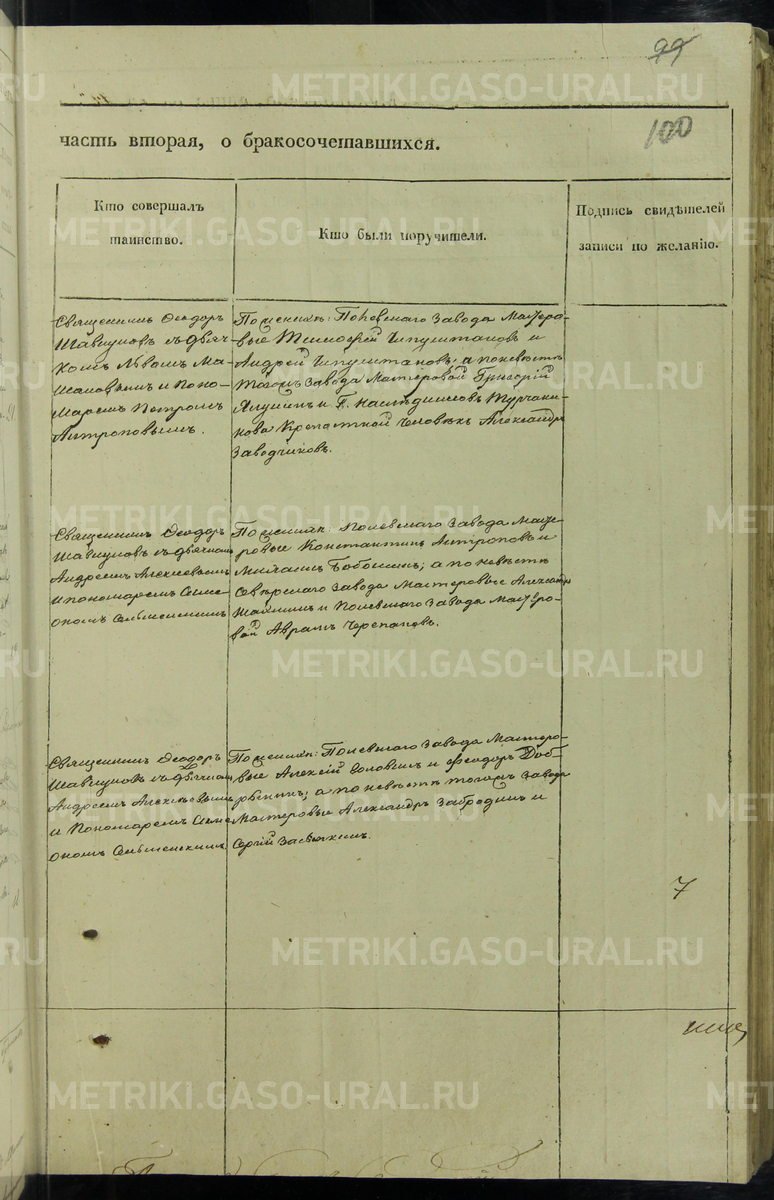 99
100
часть вторая, о бракосочетавшихся.
Кто совершалъ
таинство.
Кто были поручители.
Подпись свидѣтелей
записи по желанію.
Священникъ Ѳеодоръ
Шавкуновъ съ дьяч-
комъ Львомъ
и Поно-
маремъ Петромъ
Антроповымъ.
По женихѣ: Полевскаго Завода Масте­ро-
вые Тимоѳей Чипуштановъ и
Андрей Чипуштановъ; а по невѣстѣ
тогожъ завода Мастеровой Григорій
и Г. Наслѣдниковъ Турчани-
нова Крепостной Человѣкъ Александръ
Заводчиковъ.
Священникъ Ѳеодоръ
Шавкуновъ съ дьячкомъ
Андреемъ Алексѣевымъ
и пономаремъ Симе-
ономъ
По женихѣ: Полевскаго Завода Масте-
ровые Константинъ Антроповъ и
Михаилъ; а по невѣстѣ
Сѣверскаго Завода Мастеровые Александръ
и Полевскаго Завода Мастеро-
вой Аврамъ Черепановъ.
Священникъ Ѳеодоръ
Шавкуновъ съ дьячкомъ
Андреемъ Алексѣевымъ
и Пономаремъ Симе-
ономъ
По женихѣ: Полевскаго Завода Мастеро-
вые Алексѣй и Ѳеодоръ
а по невѣстѣ тогожъ Завода
Мастеровые Александръ Забродинъ и
Сергій
7
METRIKI.GASO-URAL.RU